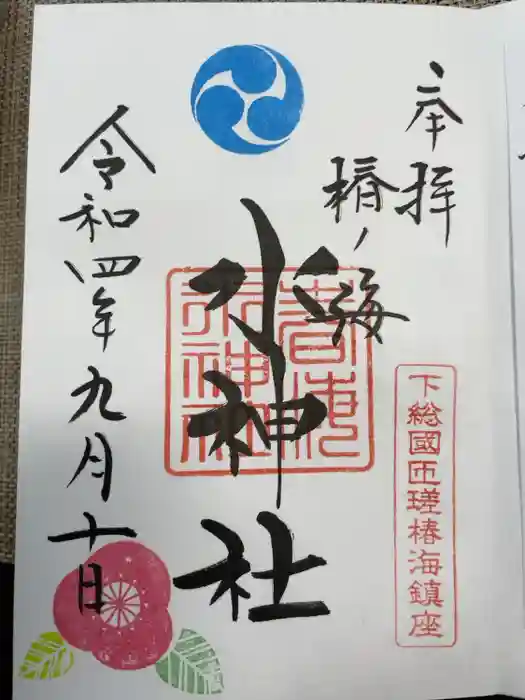 奉拝
椿ノ海
水神社
令和四年九月十日
下総國匝瑳椿海鎮座
椿海
水神社